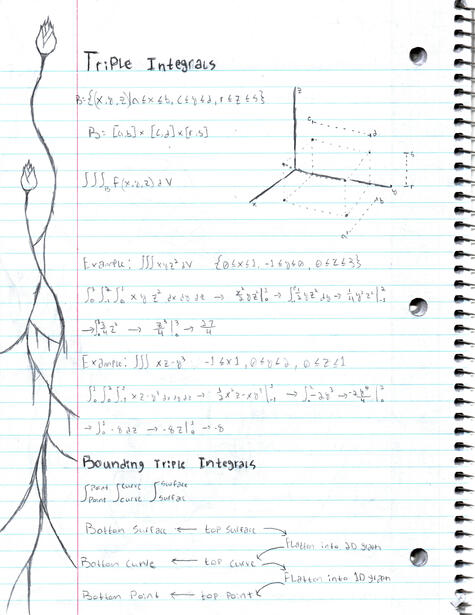 Triple Integrals
B={(x,y,z)|a≤x≤b, c≤y≤d, r≤z≤s}
B=[a,b]×[c,d]×[r,s]
z
c
d
s
r
y
x
b
a
∫∫∫_B f(x,y,z)dV
Example: ∫∫∫ xyz² dV {0≤x≤1, -1≤y≤
∫₀³ ∫₋₁² ∫₀¹ xyz² dx dy dz →
→ → z³/4 |₀³ → 27/4
Example: ∫∫∫ xz-y³ -1≤x≤1, 0≤y≤2, 0≤z≤1
∫₀¹ ∫₀² ∫₋₁¹ xz-y³ dx dy dz → ½x²z-xy³|₋₁¹ → ∫₀² -2y³ → -2y⁴/4 |₀²
→ ∫₀¹ -8 dz → -8z|₀¹ → -8
Bounding Triple Integrals
∫ Point Point ∫ curve curve ∫ surface surface
Bottom Surface ← top surface
Flatten into 2D graph
Bottom Curve ← top curve
Flatten into 1D graph
Bottom Point ← top point